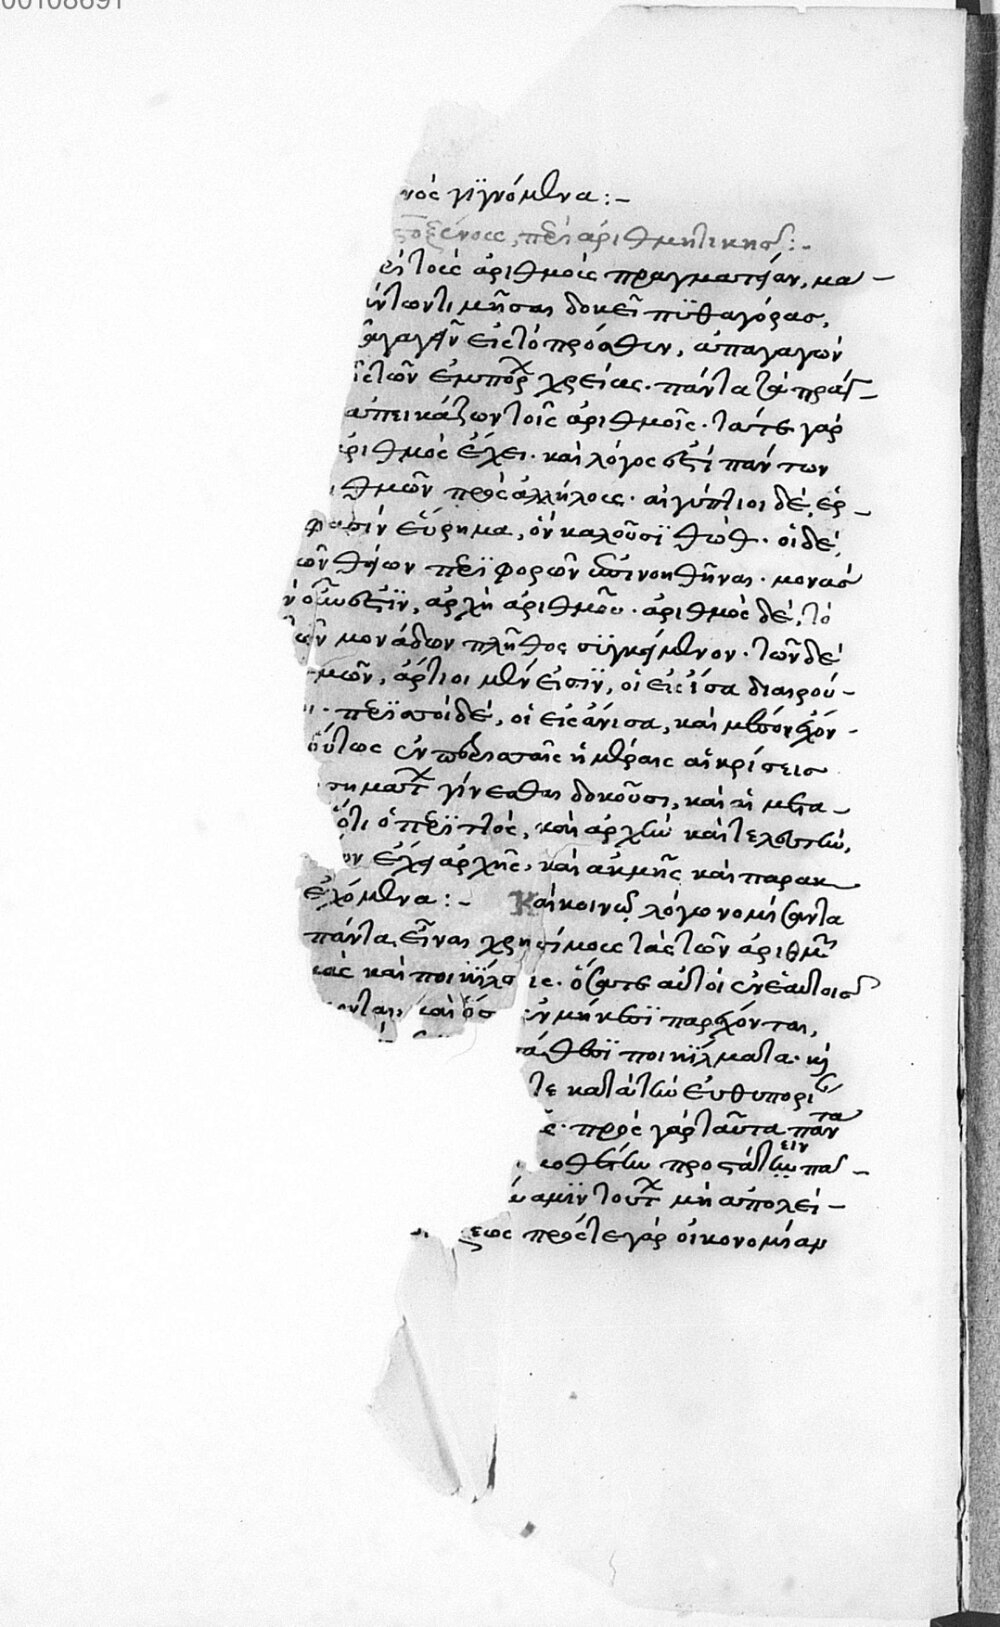 00108691
νὸς γϊγνόμενα :-
ξοξένους, περὶ ἀριθμητικῆς :-
ρὶ τοὺς ἀριθμοὺς πραγματείαν, μα -
άντων τιμῆσαι δοκεῖ πϋθαγόρας,
αγαγεῖν εἰς τὸ πρόσθεν, ἀπαγαγὼν
τῶν ἐμπόρ χρείας. πάντα τὰ πράγ -
ἀπεικάζων τοῖς ἀριθμοῖς. τά τε γὰρ
ἀριθμὸς ἔχει. καὶ λόγος ἐστὶ πάντων
ιθμῶν πρὸς ἀλλήλους. αἰγύπτιοι δὲ, ἑρ -
φασὶν εὕρημα, ὃν καλοῦσϊ θώθ. οἱ δὲ,
τῶν θείων περϊφορῶν ἐπινοηθῆναι. μονὰς
ν οὖν ἐστϊν, ἀρχὴ ἀριθμοῦ. ἀριθμὸς δὲ, τὸ
τῶν μονάδων πλῆθος σϋγκείμενον. τῶν δὲ
μῶν, ἄρτιοι μέν εἰσϊν, οἱ εἰς ἴσα διαιρού -
ι. περϊσσοὶ δὲ, οἱ εἰς ἄνισα, καὶ μέσον ἔχον -
οὕτως ἐν περισσαῖς ἡμέραις αἱ κρίσεις
σηματ γίνεσθαι δοκοῦσι, καὶ αἱ μετα -
ὅτι ὁ περϊττὸς, καὶ ἀρχὴν καὶ τελευτὴν,
ον ἔχει ἀρχῆς, καὶ ἀκμῆς καὶ παρακ
ἐχόμενα :- Καὶ κοινῷ λόγω νομίσαντα
πάντα εἶναι χρησίμους τὰς τῶν ἀριθμῶν
μὰς καὶ ποικϊλσεις. ὅσα τε αὐτοὶ ἐν ἑαυτοῖς
ονται, καὶ ὅσ ἐν μήκεσϊ παρέχονται,
άθεσϊ ποικϊλματα. κὶ
τε κατὰ τὴν εὐθυπορί
πρὸς γὰρ ταῦτα πάντα
οθέτην προστάττειν πᾶσ -
ναμϊν τούτ μὴ ἀπολεί -
ξεως πρός τε γὰρ οἰκονομίαν